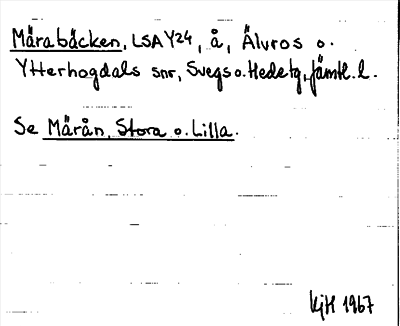 Märabäcken, LSA Y24, å, Älvros o.
Ytterhogdals snr, Svegs o. Hedetg, Jämtl. l.
Se Märån, Stora o. Lilla.
KjH 1967